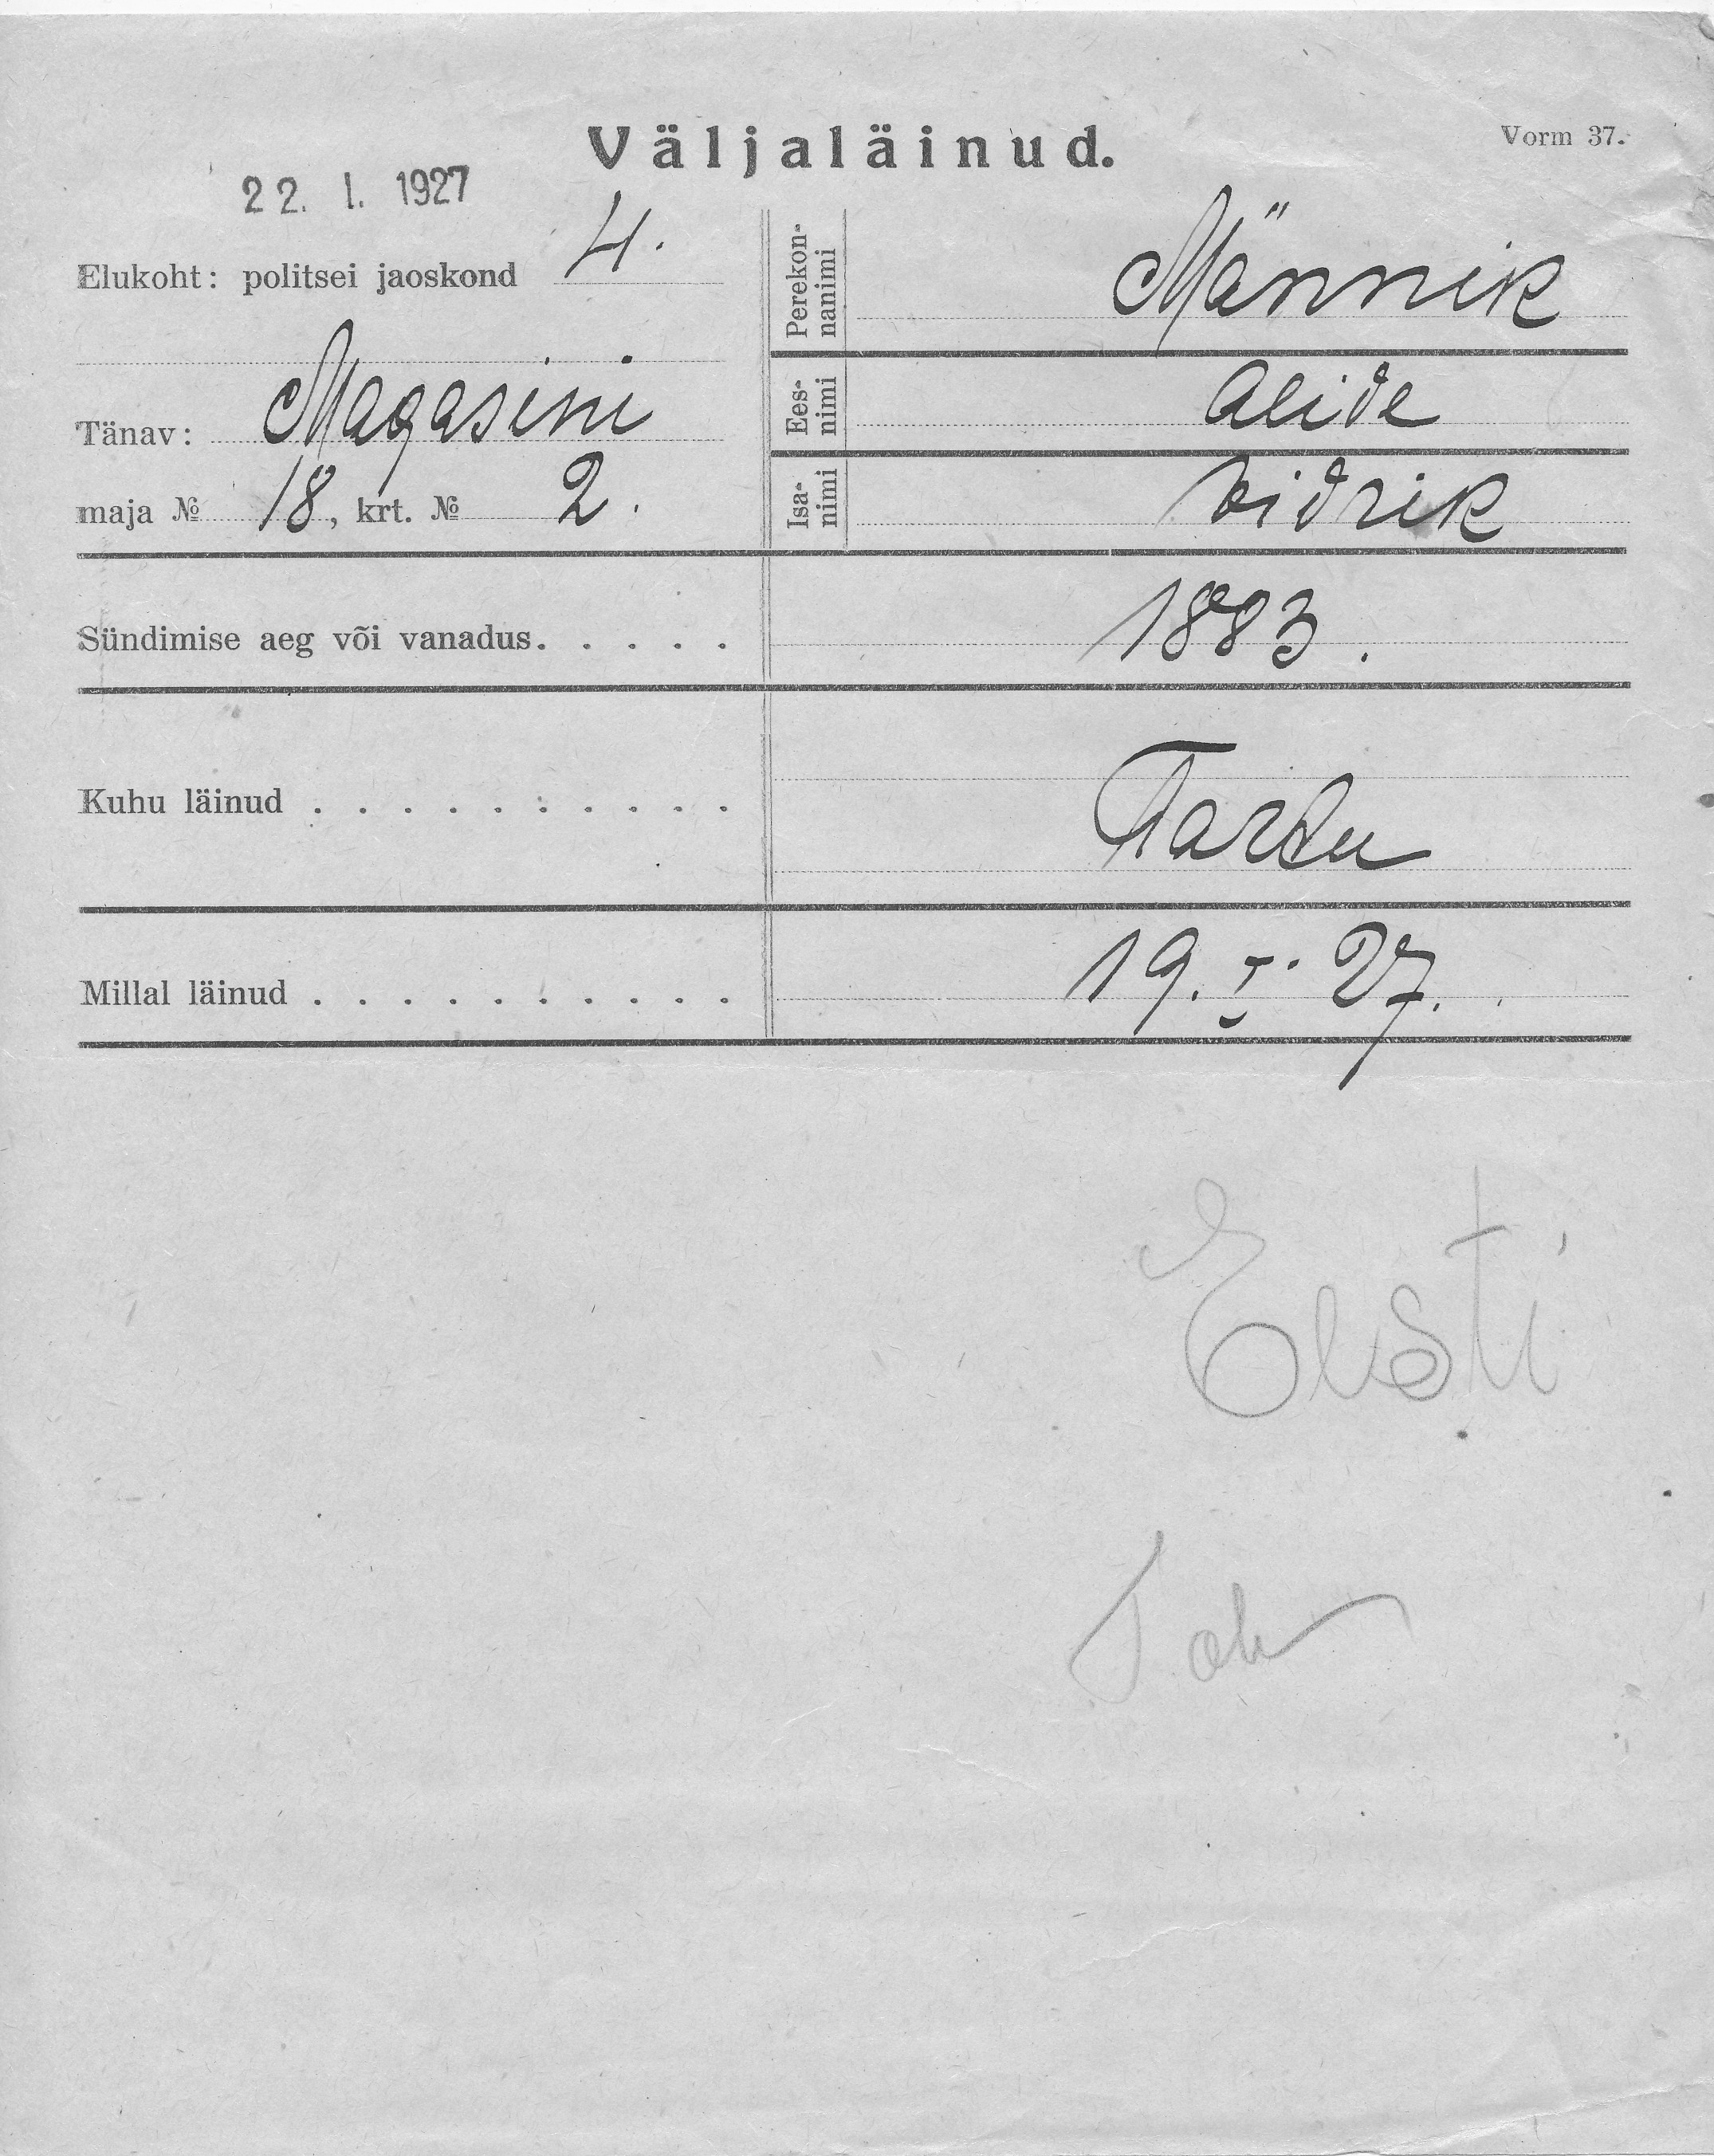 Väljaläinud.
Vorm 37.
22. I. 1927
Elukoht: politsei jaoskond 4.
Tänav: Magasini
maja № 18, krt. № 2.
Perekon-
nanimi
Männik
Ees-
nimi
Alide
Isa-
nimi
Vidrik
Sündimise aeg või vanadus. . . . . 1883.
Kuhu läinud . . . . . . . . . . Tartu
Millal läinud . . . . . . . . . . 19. I. 27.
Eesti